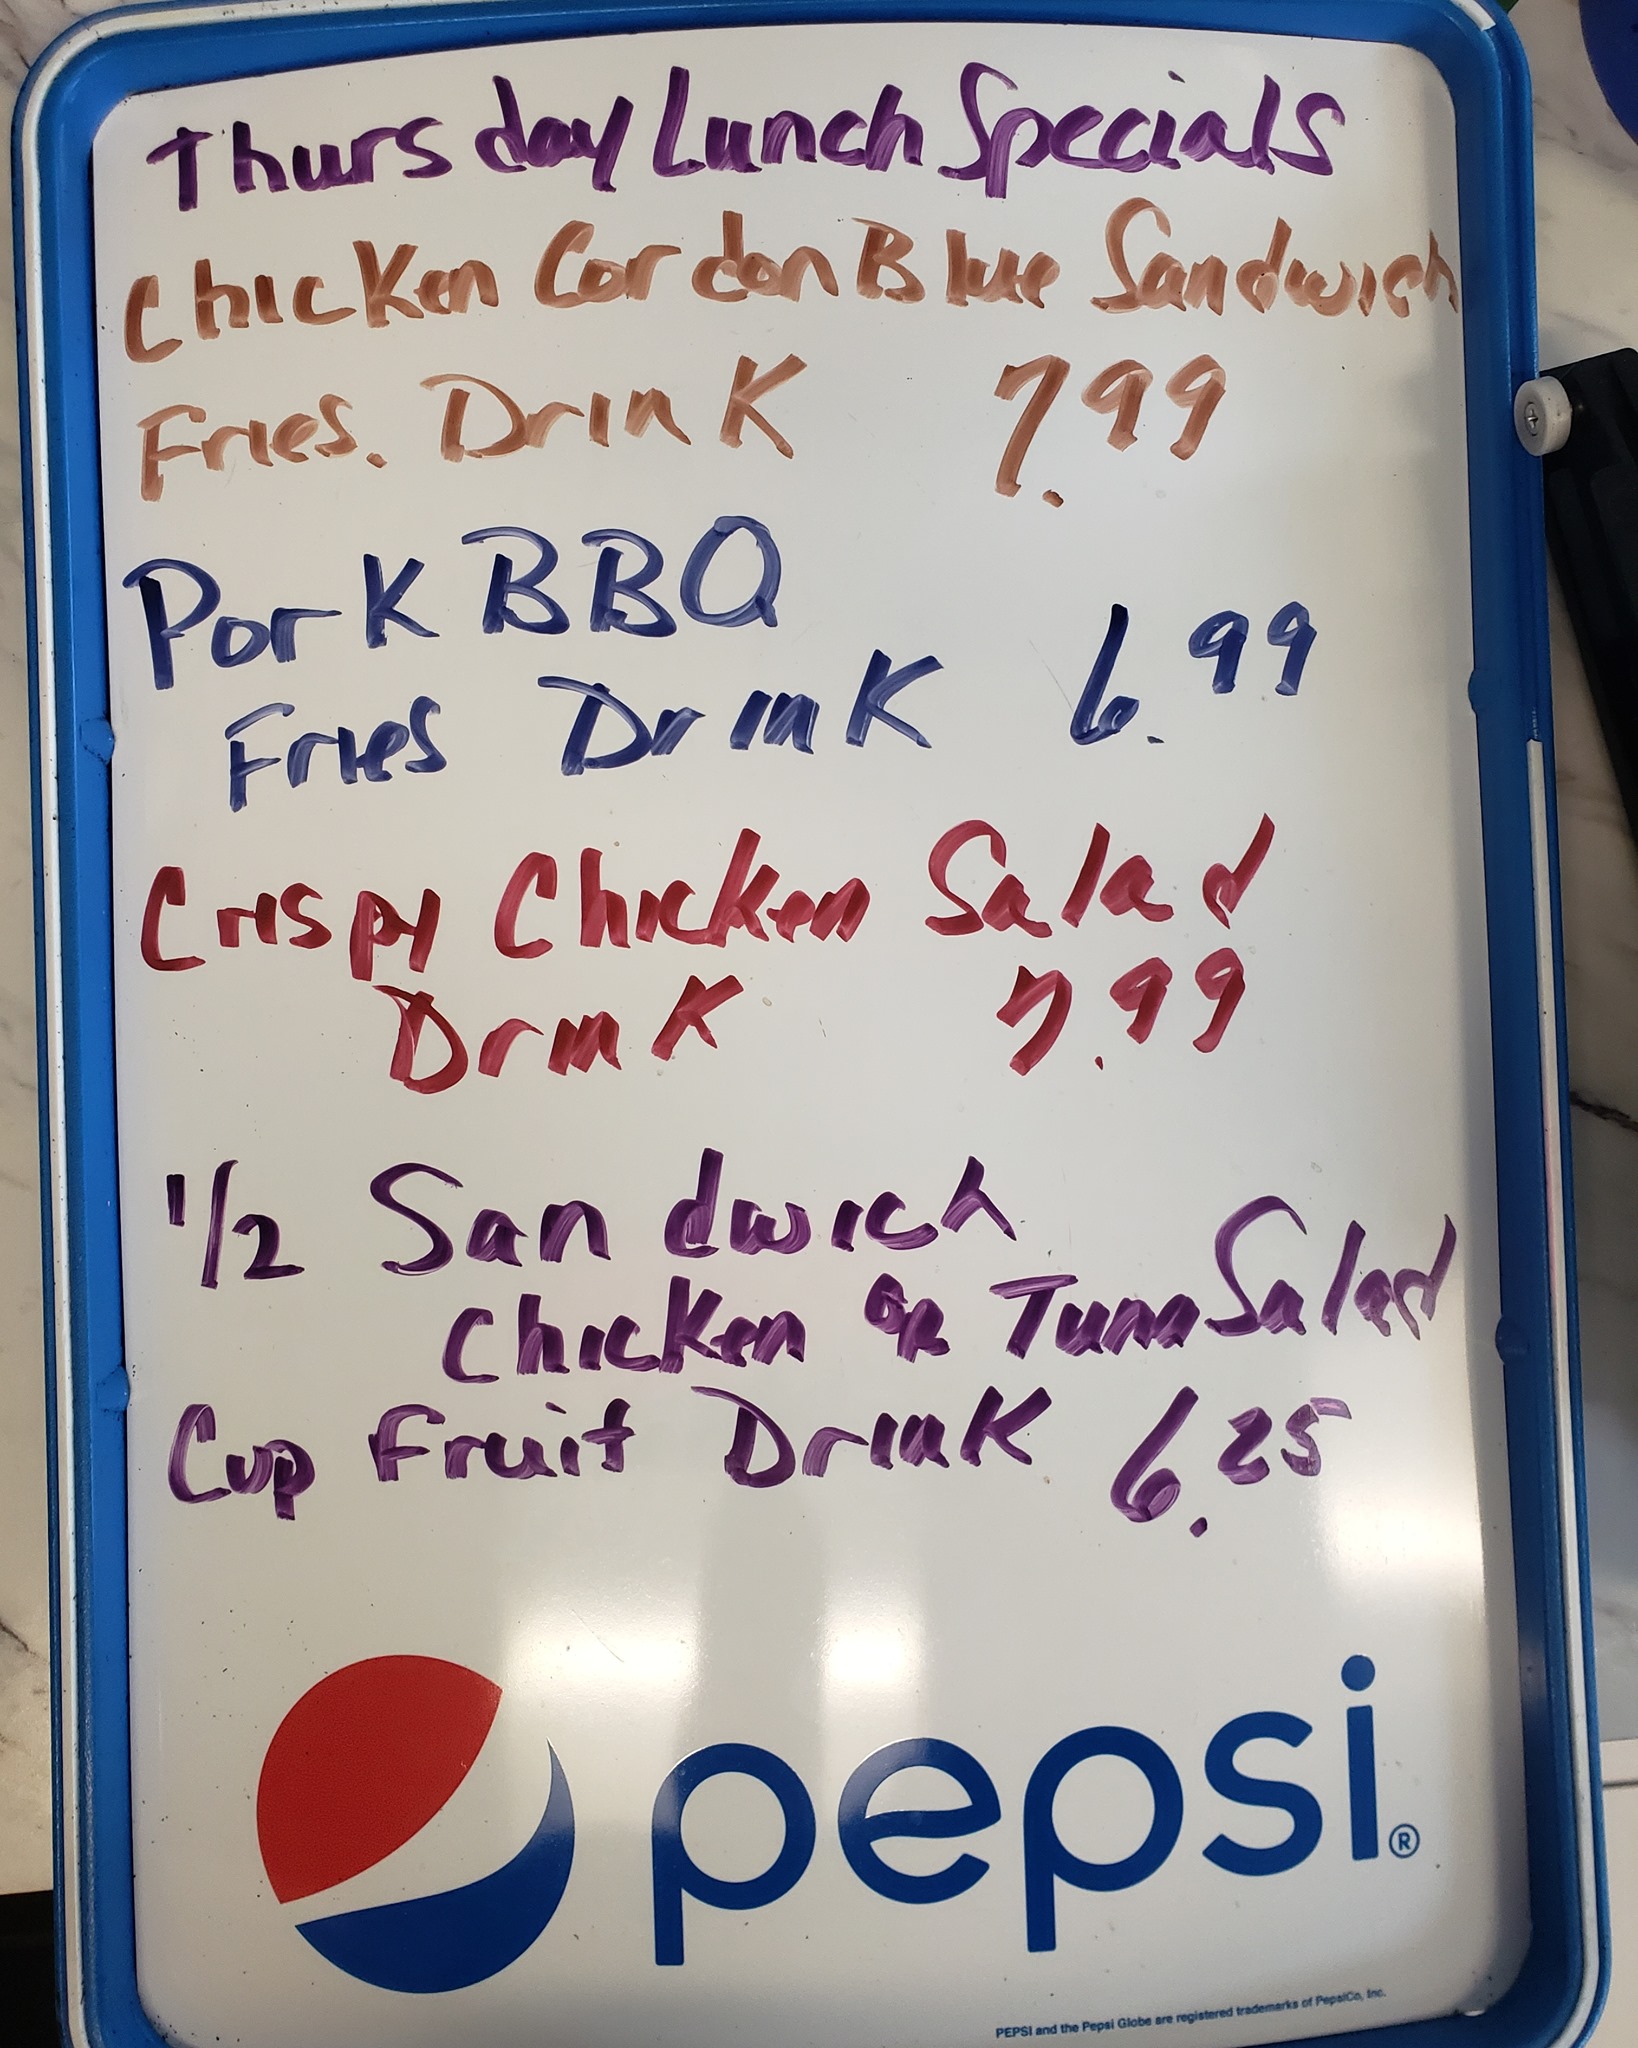 Thursday Lunch Specials
Chicken Cordon Blue Sandwich
Fries. Drink 7.99
Pork BBQ
Fries Drink 6.99
Crispy Chicken Salad
Drink 7.99
1/2 Sandwich
Chicken or Tuna Salad
Cup Fruit Drink 6.25
pepsi®
PEPSI and the Pepsi Globe are registered trademarks of PepsiCo, Inc.